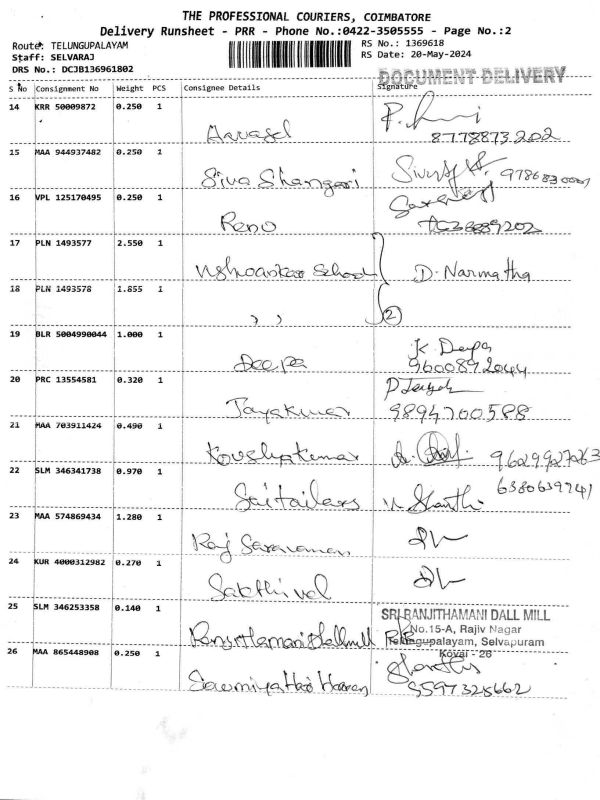 THE PROFESSIONAL COURIERS, COIMBATORE
Delivery Runsheet - PRR - Phone No.:0422-3505555 - Page No.:2
Route: TELUNGUPALAYAM
RS No.: 1369618
Staff: SELVARAJ
RS Date: 20-May-2024
DRS No.: DCJB136961802
DOCUMENT DELIVERY
S No Consignment No Weight PCS Consignee Details Signature
14 KRR 50009872 0.250 1
8778873202
15 MAA 944937482 0.250 1
Siva Shangari
16 VPL 125170495 0.250 1
Reno
17 PLN 1493577 2.550 1
School D. Narmatha
18 PLN 1493578 1.855 1
,, 2
19 BLR 5004990044 1.000 1
K Deepa
Deepa 9600892044
20 PRC 13554581 0.320 1
Jayakumar 9894700588
21 MAA 703911424 0.490 1
9629927263
22 SLM 346341738 0.970 1
Sai tailers Shanthi 6380639741
23 MAA 574869434 1.280 1
Raj Saravanan
24 KUR 4000312982 0.270 1
Sakthivel
25 SLM 346253358 0.140 1
SRI RANJITHAMANI DALL MILL
No.15-A, Rajiv Nagar
Ranjithamani Dallmill Telungupalayam, Selvapuram
Kovai - 26
26 MAA 865448908 0.250 1
Sowmiya Hari Haran 9597325662